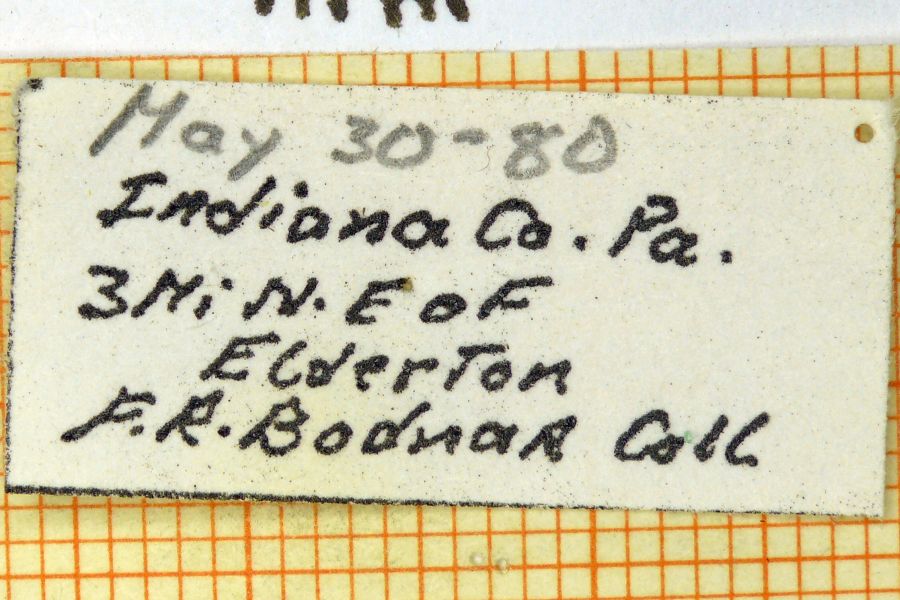 May 30-80
Indiana Co. Pa.
3 Mi N. E of
Elderton
F.R. Bodnar Coll